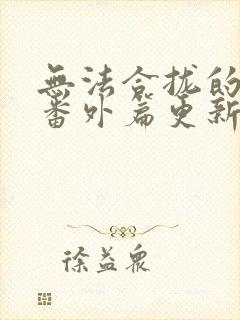 無法合拢的
番外篇更新
徐益眾